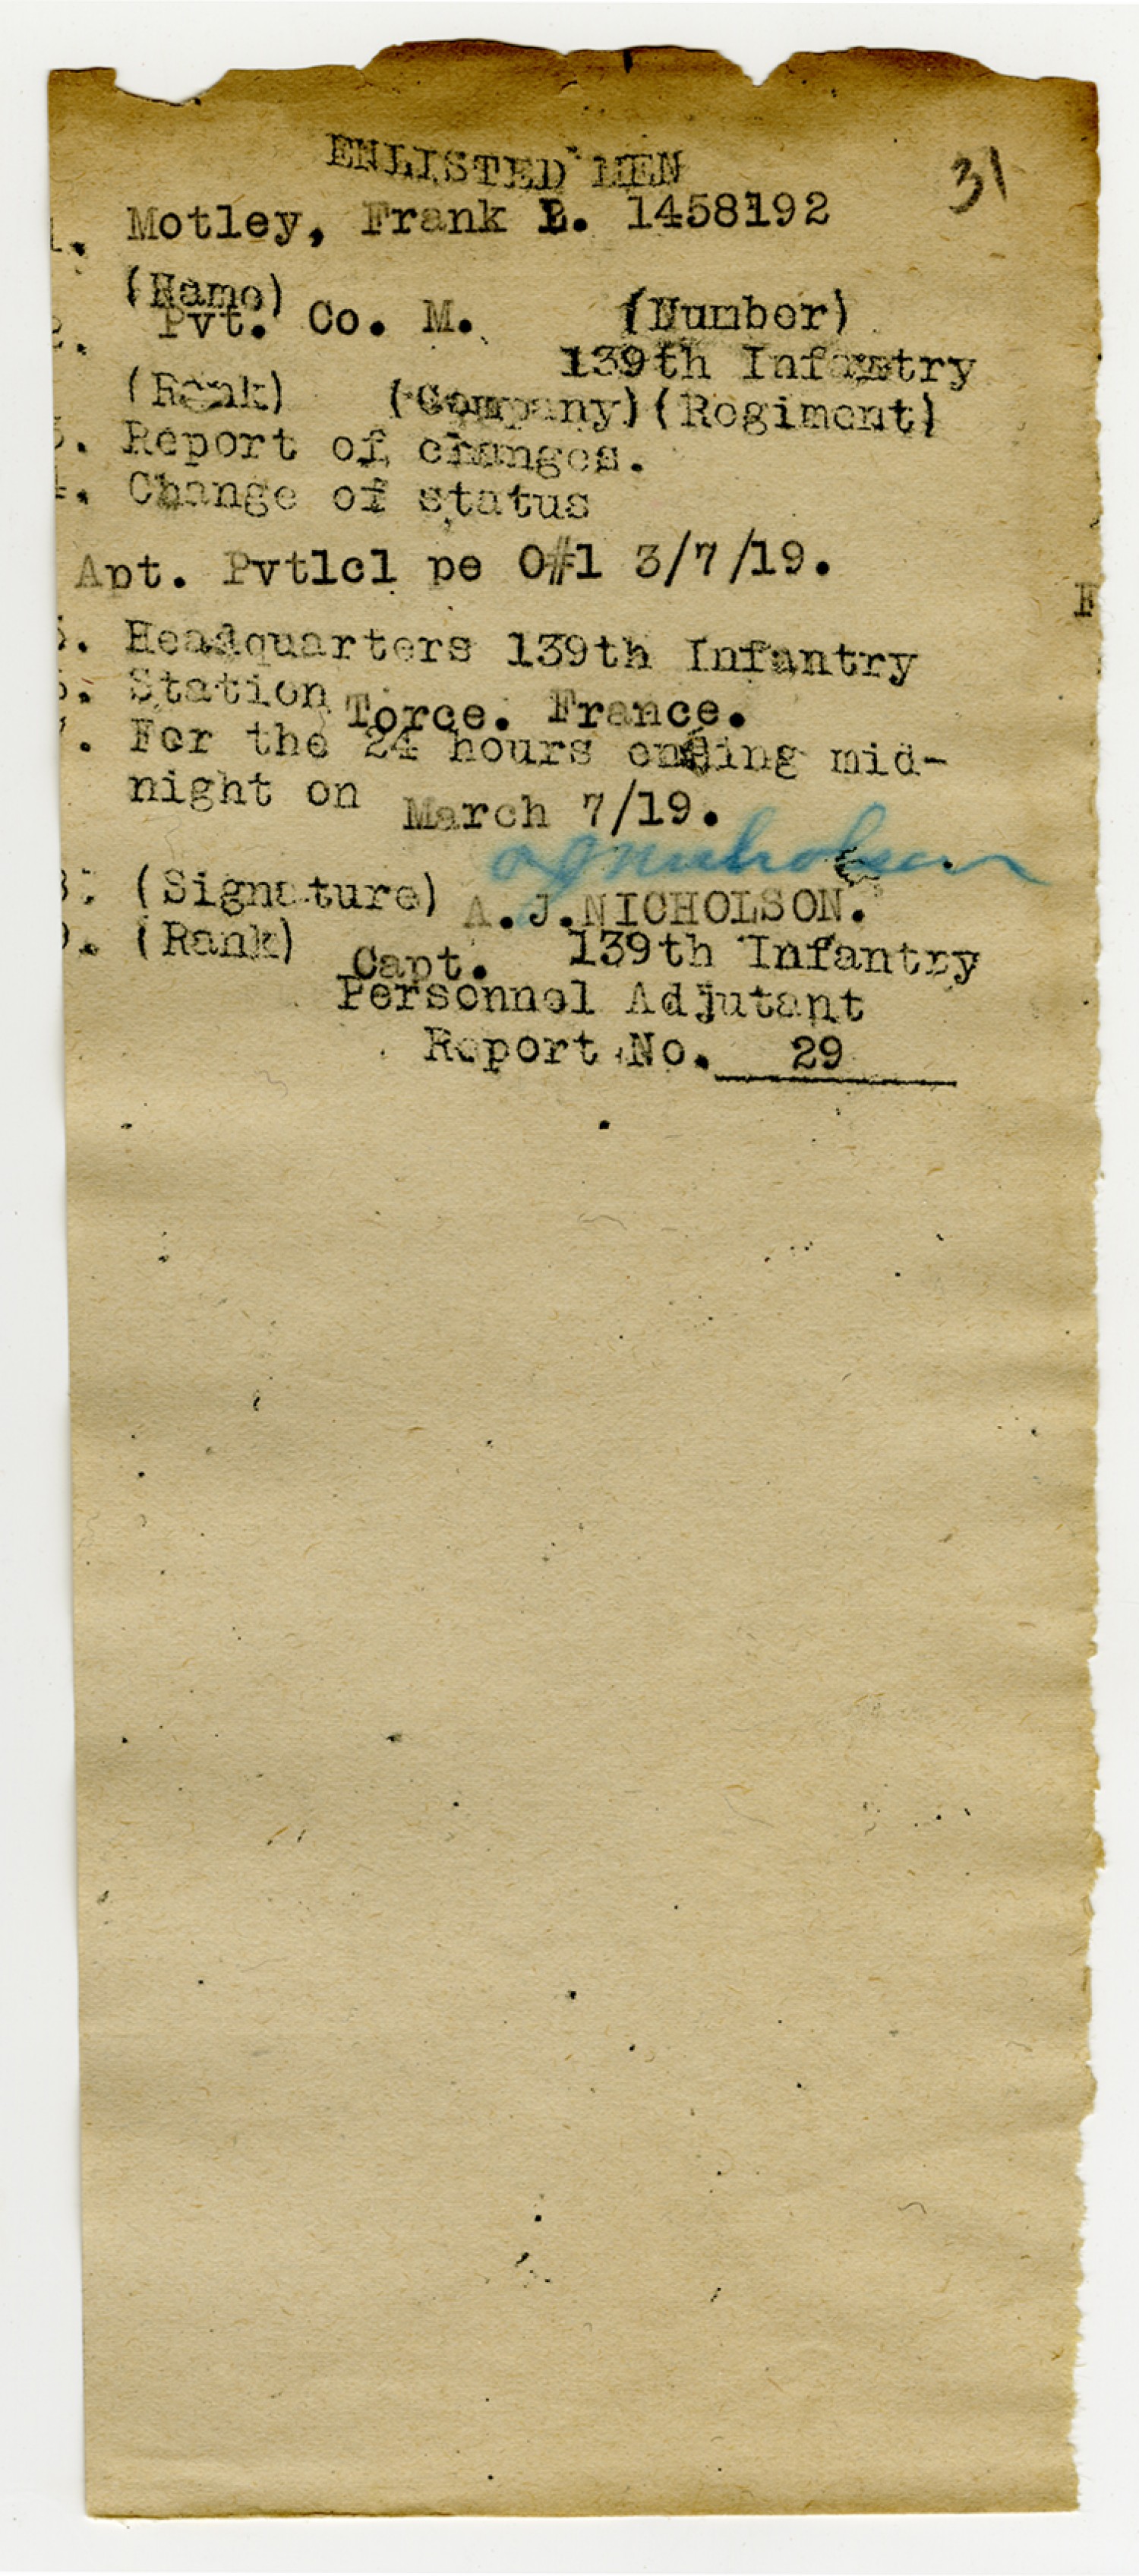 ENLISTED MEN
31
1. Motley, Frank 1458192
(Name) (Number)
2. Pvt. Co. M. 139th Infantry
(Rank) (Company) (Regiment)
3. Report of changes.
4. Change of status
Apt. Pvt1cl pe O#1 3/7/19.
5. Headquarters 139th Infantry
6. Station Torce. France.
7. For the 24 hours ending mid-
night on March 7/19.
A J Nicholson
8. (Signature) A.J.NICHOLSON.
9. (Rank) Capt. 139th Infantry
Personnel Adjutant
Report No. 29